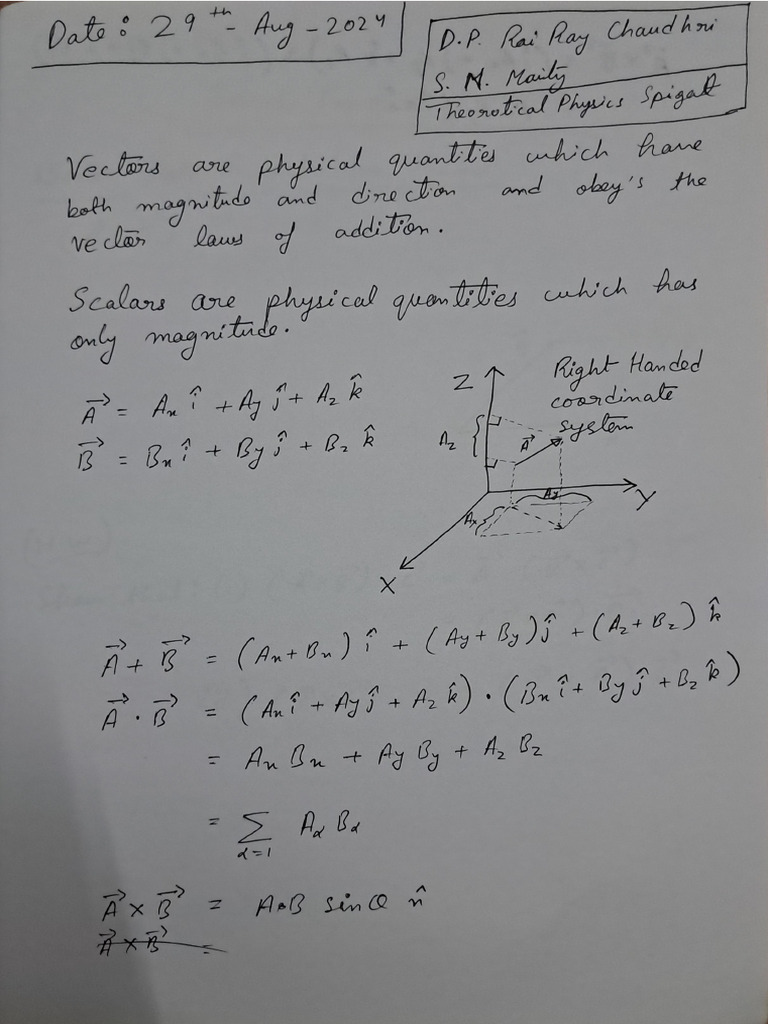 Date: 29th - Aug - 2024
D.P. Rai Ray Chaudhri
S. N. Maity
Theorotical Physics Spigal
Vectors are physical quantities which have
both magnitude and direction and obey's the
vector laws of addition.
Scalars are physical quantities which has
only magnitude.
A⃗ = Ax î + Ay ĵ + Az k̂
B⃗ = Bx î + By ĵ + Bz k̂
Right Handed
coordinate
system
Z
Az
A⃗
Ay
Ax
Y
X
A⃗ + B⃗ = (Ax + Bx) î + (Ay + By) ĵ + (Az + Bz) k̂
A⃗ · B⃗ = (Ax î + Ay ĵ + Az k̂) · (Bx î + By ĵ + Bz k̂)
= Ax Bx + Ay By + Az Bz
= Σ Aα Bα
α=1
A⃗ × B⃗ = AB sinθ n̂
A⃗ × B⃗ =